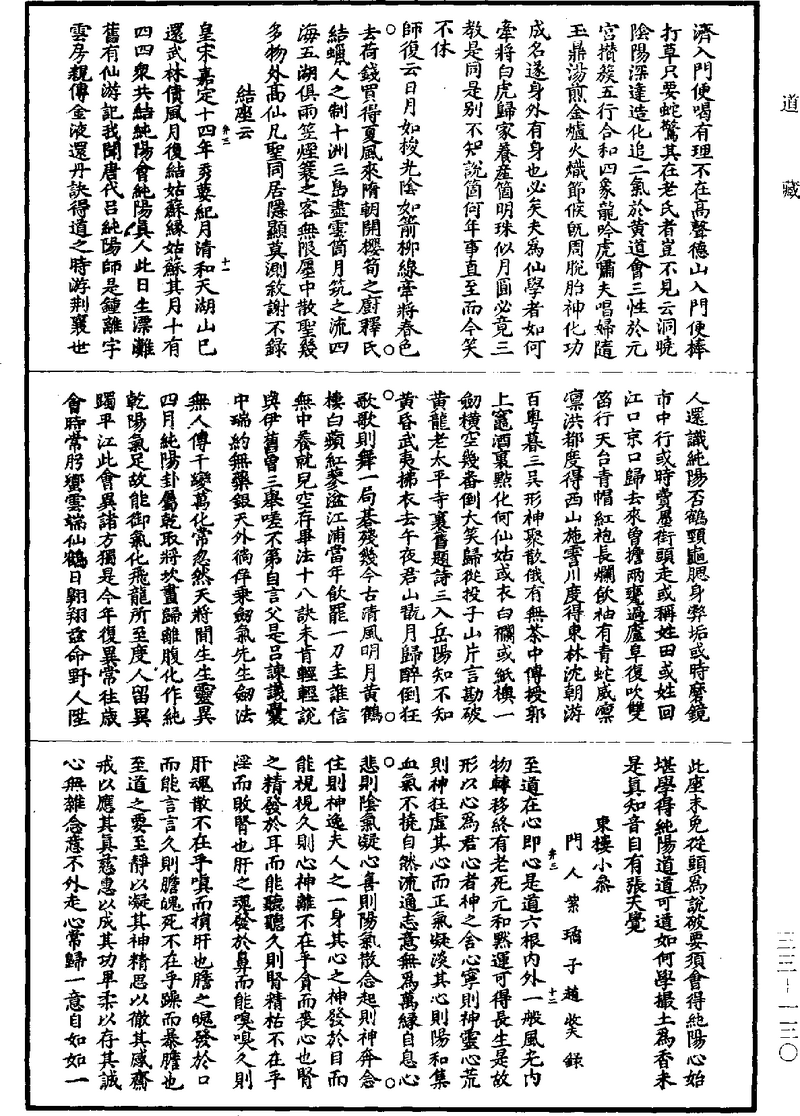 道藏
濟入門便喝有理不在高聲德山入門便棒
打草只要蛇驚其在老氏者豈不見云洞曉
陰陽深達造化追二氣於黃道會三性於元
宮攢簇五行合和四象龍吟虎嘯夫唱婦隨
玉鼎湯煎金爐火熾節候旣周脫胎神化功
成名遂身外有身也必矣夫爲仙學者如何
牽將白虎歸家養產箇明珠似月圓必竟三
教是同是別不知說箇何年事直至而今笑
不休
師復云日月如梭光陰如箭柳線牽將春色
去荷錢買得夏風來隋朝開櫻筍之廚釋氏
結蠟人之制十洲三島盡雲笥月筑之流四
海五湖俱雨笠煙簑之客無限塵中散聖幾
多物外高仙凡聖同居隱顯莫測敘謝不錄
結座云
皇宋嘉定十四年秀葽紀月清和天湖山已
還武林債風月復結姑蘇緣姑蘇其月十有
四四衆共結純陽會純陽眞人此日生漂灕
舊有仙游記我聞唐代呂純陽師是鍾離字
雲房親傳金液還丹訣得道之時游荆襄世
弁三
十一
人還識純陽否鶴頸龜腮身弊垢或時磨鏡
市中行或時賣墨街頭走或稱姓田或姓回
江口京口歸去來曾擔兩甕過廬阜復吹雙
笛行天台青帽紅袍長爛飲袖有青蛇威凛
凛洪都度得西山施霅川度得東林沈朝游
百粵暮三吴形神聚散俄有無茶中傳授郭
上竈酒裏點化何仙姑或衣白襴或紙襖一
劒橫空幾番倒大笑歸從投子山片言勘破
黃龍老太平寺裏舊題詩三入岳陽知不知
黃昏武夷拂衣去午夜君山翫月歸醉倒狂
歌歌則舞一局棊殘幾今古清風明月黃鶴
樓白蘋紅蓼湓江浦當年飲罷一刀圭誰信
無中養就兒空存畢法十八訣未肯輕輕說
與伊舊曾三舉嗟不第自言父是呂諫議囊
中瑞約無藥銀天外徜徉乘劒氣先生劒法
無人傳千變萬化常忽然天將間生生靈異
四月純陽卦屬乾取將坎畫歸離腹化作純
乾陽氣足故能御氣化飛龍所至度人留異
躅平江此會異諸方獨是今年復異常往歲
會時常肹蠁雲端仙鶴日翺翔茲命野人陞
此座未免從頭爲說破要須會得純陽心始
堪學得純陽道道可道如何學撮土爲香未
是眞知音自有張天覺
東樓小參
門人紫璚子趙收夫錄
弁三
十二
至道在心即心是道六根內外一般風光內
物轉移終有老死元和默運可得長生是故
形以心爲君心者神之舍心寧則神靈心荒
則神狂虛其心而正氣凝淡其心則陽和集
血氣不撓自然流通志意無爲萬緣自息心
悲則陰氣凝心喜則陽氣散念起則神奔念
住則神逸夫人之一身其心之神發於目而
能視視久則心神離不在乎貪而喪心也腎
之精發於耳而能聽聽久則腎精枯不在乎
淫而敗腎也肝之魂發於鼻而能嗅嗅久則
肝魂散不在乎嗔而損肝也膽之魄發於口
而能言言久則膽魄死不在乎躁而暴膽也
至道之要至靜以凝其神精思以徹其感齋
戒以應其眞慈惠以成其功卑柔以存其誠
心無雜念意不外走心常歸一意自如如一
三三－一三〇